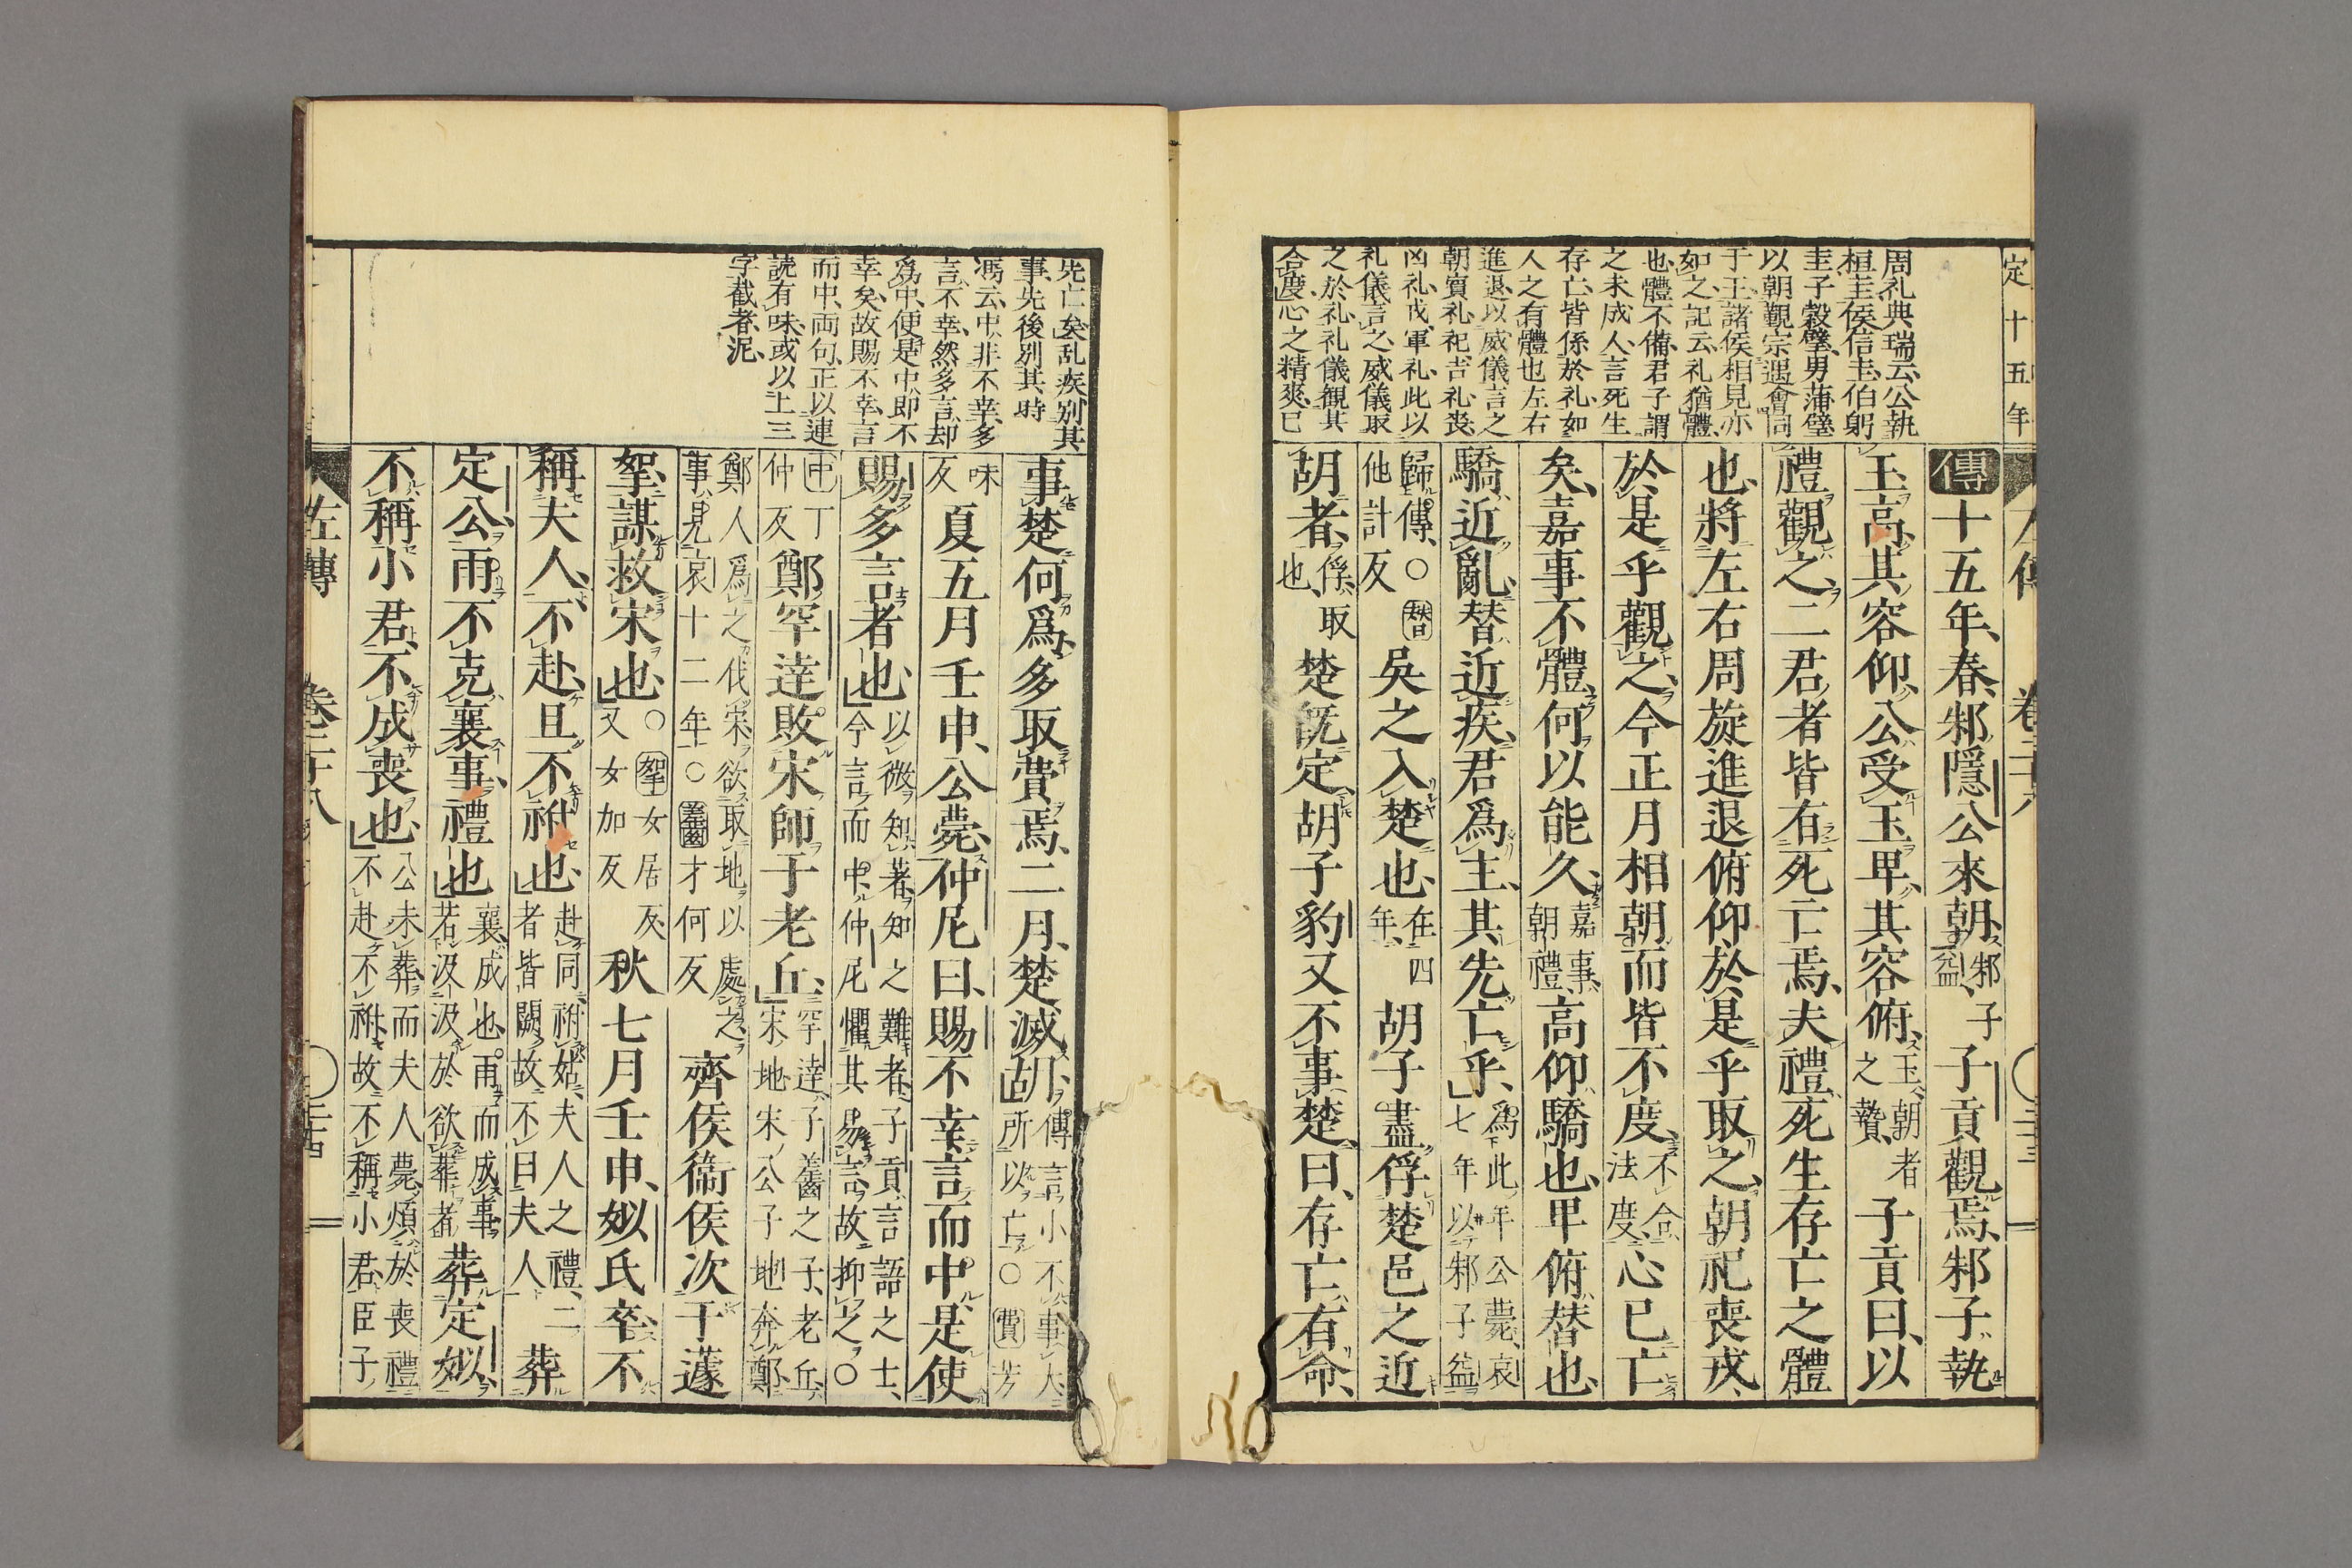 定十五年
周礼典瑞云公執
桓圭侯信圭伯躬
圭子穀璧男蒲璧
以朝覲宗遇會同
于王諸侯相見亦
如之記云礼猶體
也體不備君子謂
之未成人言死生
存亡皆係於礼如
人之有體也左右
進退以威儀言之
朝賓礼祀吉礼喪
凶礼戎軍礼此以
礼儀言之威儀取
之於礼礼儀観其
合度心之精爽已
傳十五年春邾隱公來朝邾子益子貢觀焉邾子執
玉高其容仰公受玉卑其容俯玉朝者之贄子貢曰以
禮觀之二君者皆有死亡焉夫禮死生存亡之體
也將左右周旋進退俯仰於是乎取之朝祀喪戎
於是乎觀之今正月相朝而皆不度不合法度心已亡
矣嘉事不體何以能久嘉事朝禮高仰驕也卑俯替也
驕近亂替近疾君爲主其先亡乎爲此年公薨哀七年以邾子益
歸傳○替他計反吳之入楚也在四年胡子盡俘楚邑之近
胡者俘取也楚既定胡子豹又不事楚曰存亡有命
先亡矣乱疾別其
事先後別其時
馮云中非不幸多
言不幸然多言却
爲中便是中即不
幸矣故賜不幸言
而中両句正以連
読有味或以上三
字截者泥
事楚何爲多取費焉二月楚滅胡傳言小不事大所以亡○費芳
味反夏五月壬申公薨仲尼曰賜不幸言而中是使
賜多言者也以微知著知之難者子貢言語之士今言而中仲尼懼其易言故抑之○
中丁仲反鄭罕達敗宋師于老丘罕達子齹之子老丘宋地宋公子地奔鄭
鄭人爲之伐宋欲取地以處之事見哀十二年○齹才何反齊侯衞侯次于蘧
挐謀救宋也○挐女居反又女加反秋七月壬申姒氏卒不
稱夫人不赴且不祔也赴同祔姑夫人之禮二者皆闕故不曰夫人葬
定公雨不克襄事禮也襄成也雨而成事若汲汲於欲葬者葬定姒
不稱小君不成喪也公未葬而夫人薨煩於喪禮不赴不祔故不稱小君臣子
左傳　卷二十八　二十四